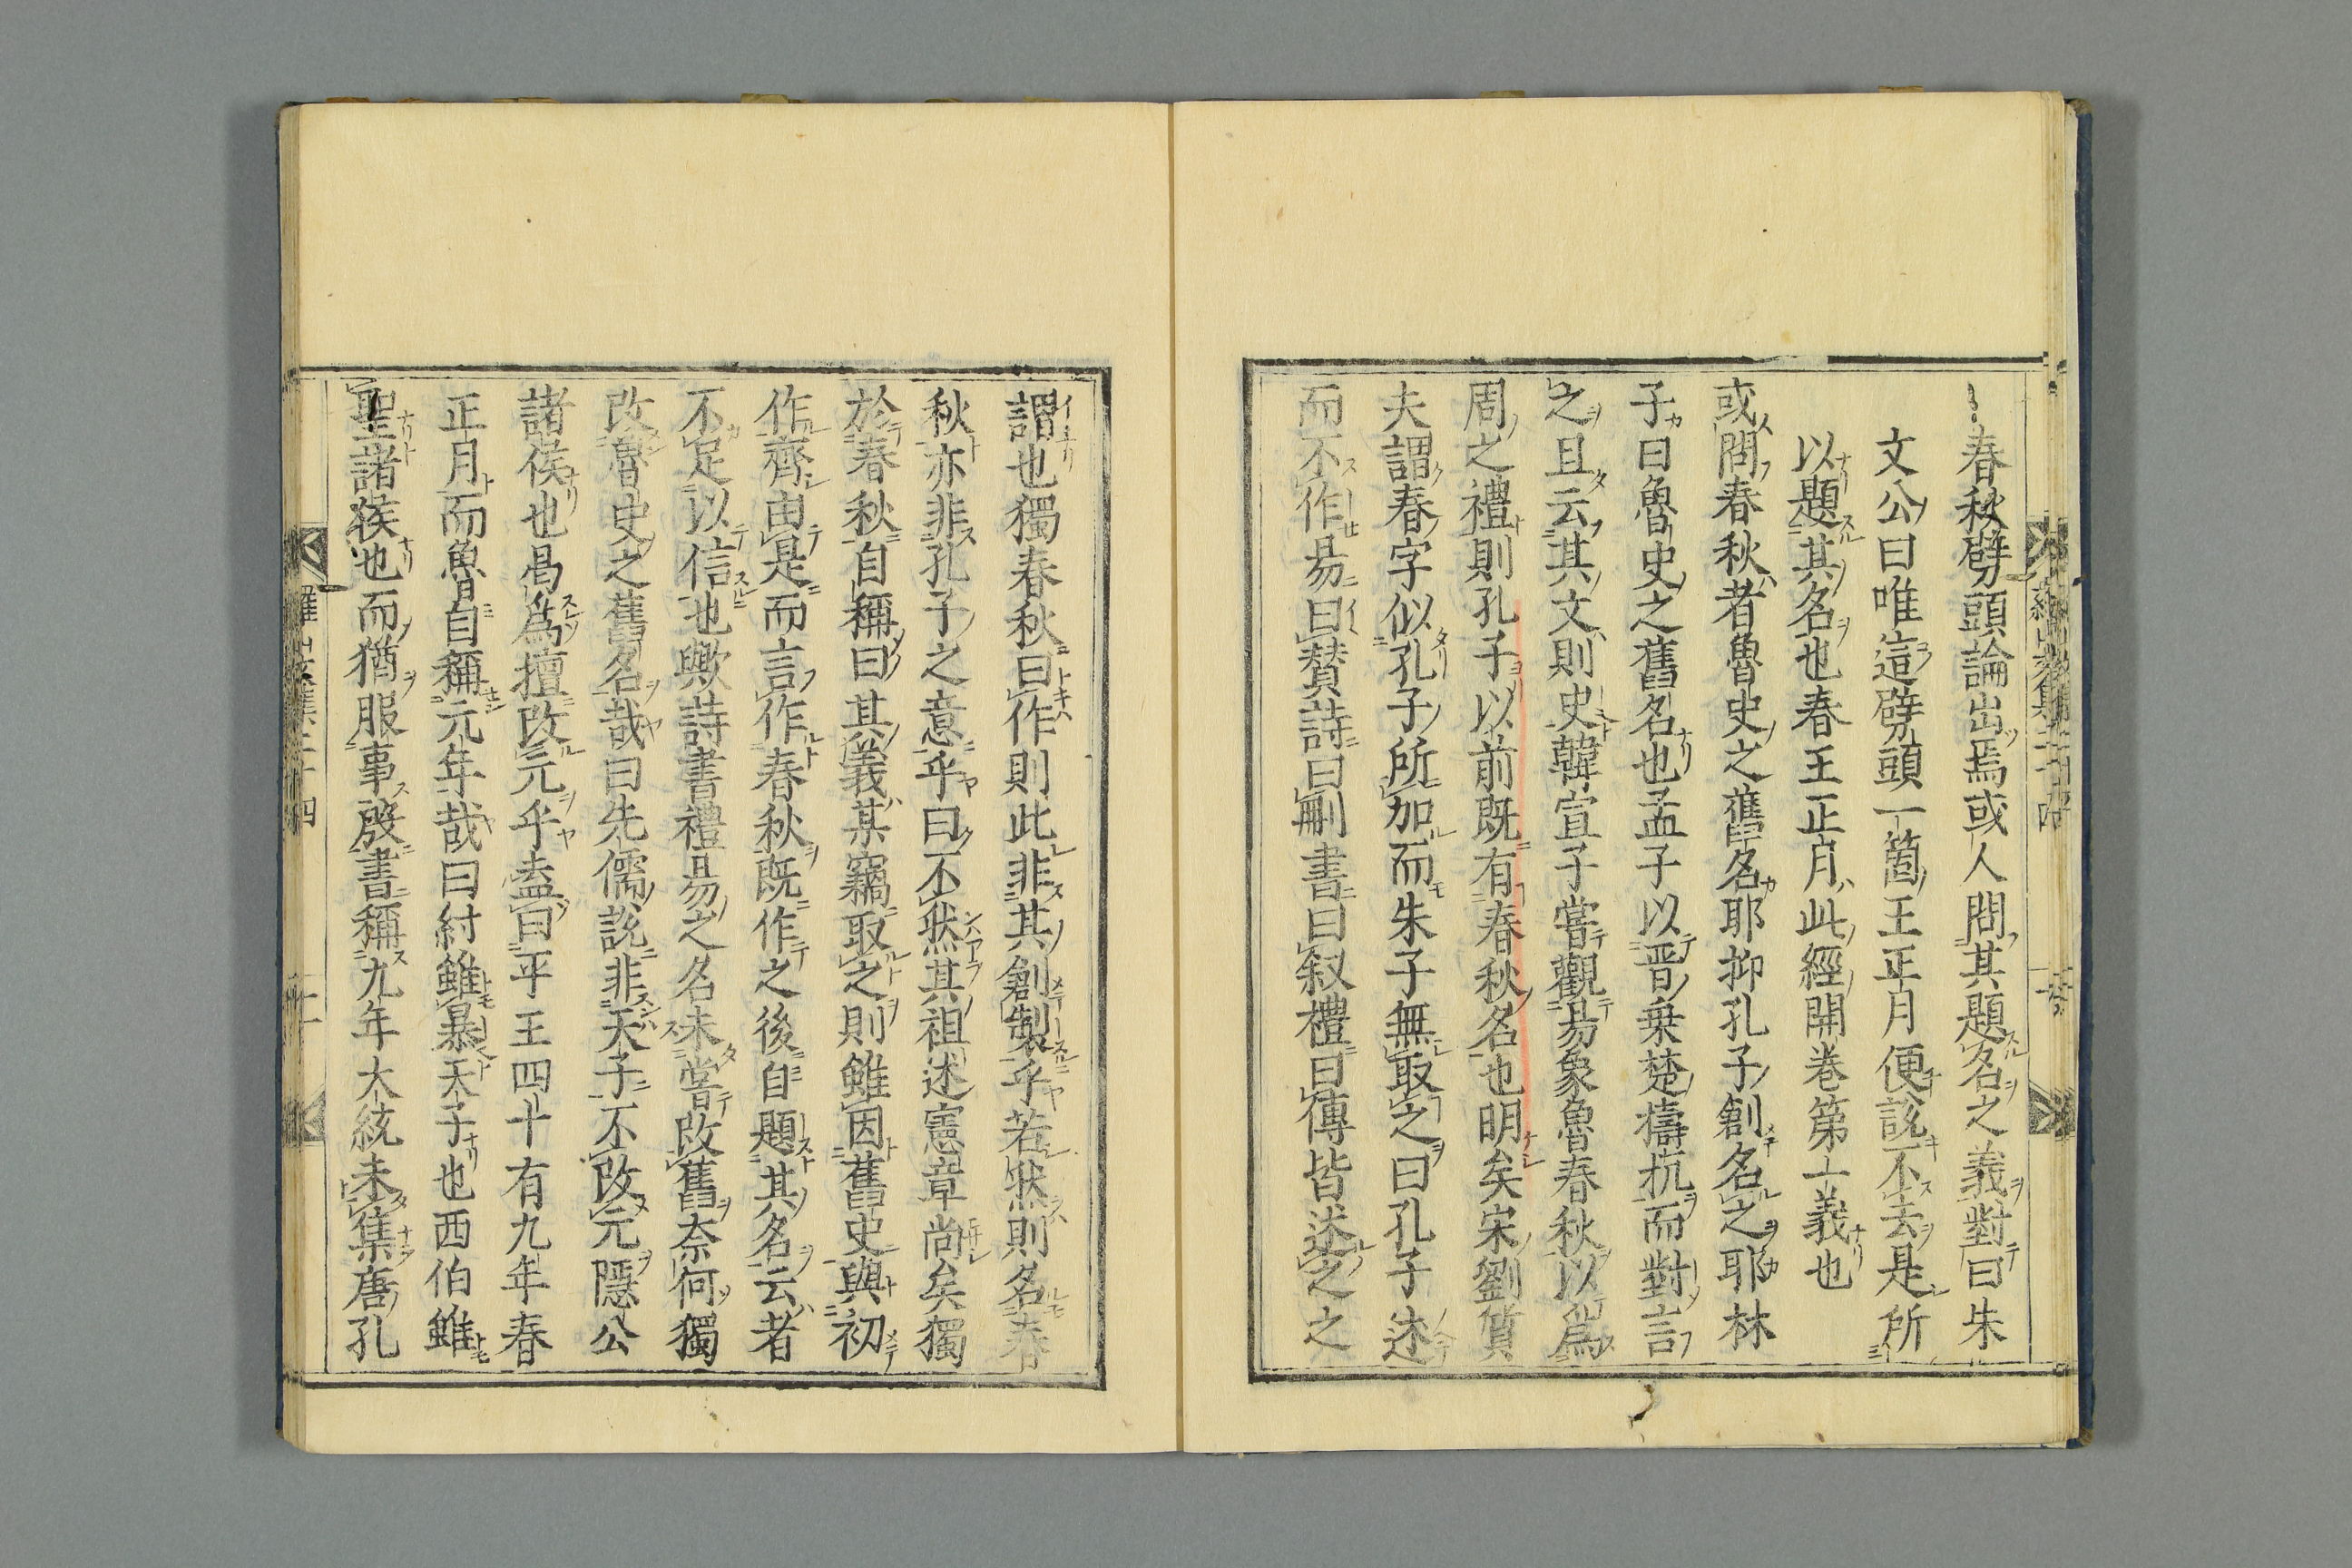 春秋劈頭論出焉或人問其題名之義對曰朱
文公曰唯這劈頭一箇王正月便說不去是所
以題其名也春王正月此經開巻第一義也
或問春秋者魯史之舊名耶抑孔子創名之耶林
子曰魯史之舊名也孟子以晋乗楚檮杌而對言
之且云其文則史韓宣子嘗觀易象魯春秋以爲
周之禮則孔子以前既有春秋名也明矣宋劉質
夫謂春字似孔子所加而朱子無取之曰孔子述
而不作易曰賛詩曰刪書曰叙禮曰傳皆述之之
謂也獨春秋曰作則此非其創製乎若然則名春
秋亦非孔子之意乎曰不然其祖述憲章尚矣獨
於春秋自稱曰其義某竊取之則雖因舊史與初
作齊由是而言作春秋既作之後自題其名云者
不足以信也歟詩書禮易之名未嘗改舊奈何獨
改魯史之舊名哉曰先儒說非天子不改元隱公
諸侯也曷爲擅改元乎盍曰平王四十有九年春
正月而魯自稱元年哉曰紂雖暴天子也西伯雖
聖諸侯也而猶服事殷書稱九年大統未集唐孔